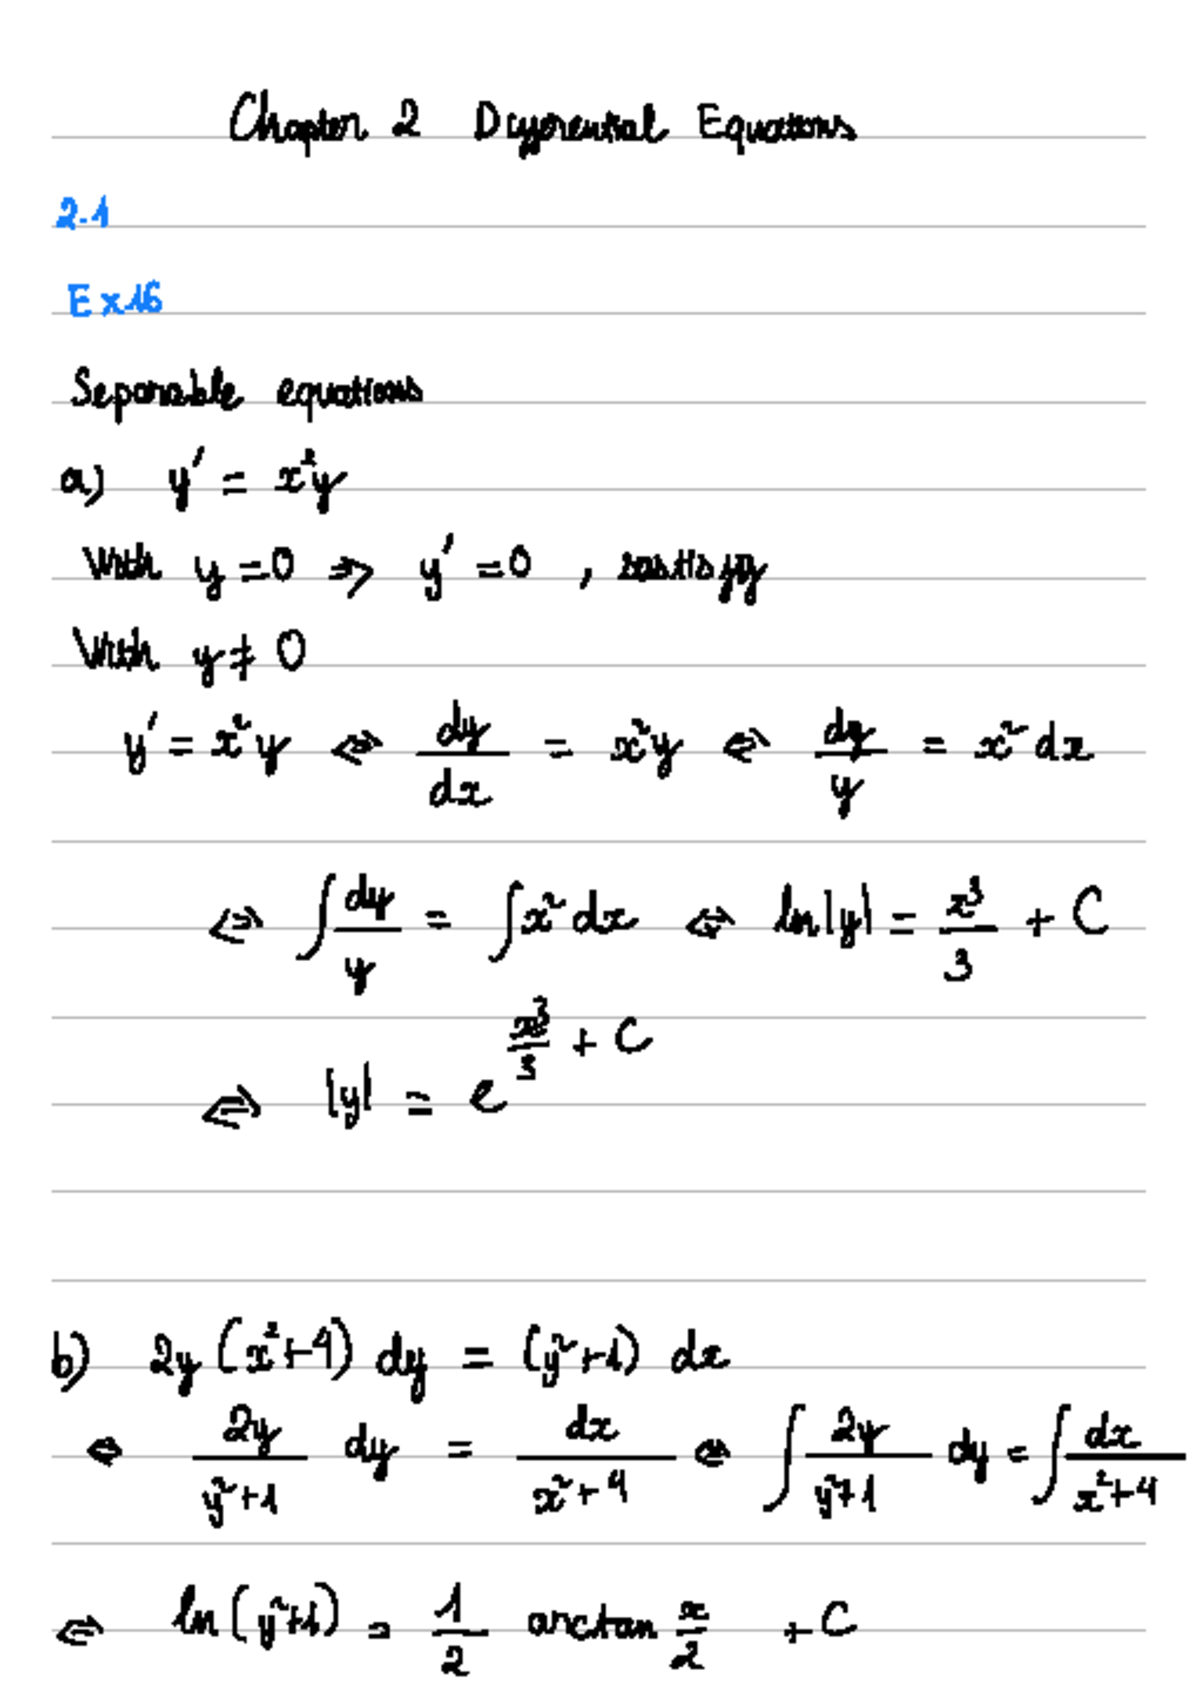 Chapter 2 Differential Equations
2.1
Ex 16
Separable equations
a) y' = x²y
With y = 0 ⇒ y' = 0 , satisfy
With y ≠ 0
y' = x²y ⇔ dy/dx = x²y ⇔ dy/y = x² dx
⇔ ∫ dy/y = ∫ x² dx ⇔ ln|y| = x³/3 + C
⇔ |y| = e^(x³/3 + C)
b) 2y (x²+4) dy = (y²+1) dx
⇔ 2y/(y²+1) dy = dx/(x²+4) ⇔ ∫ 2y/(y²+1) dy = ∫ dx/(x²+4)
⇔ ln(y²+1) = 1/2 arctan x/2 + C